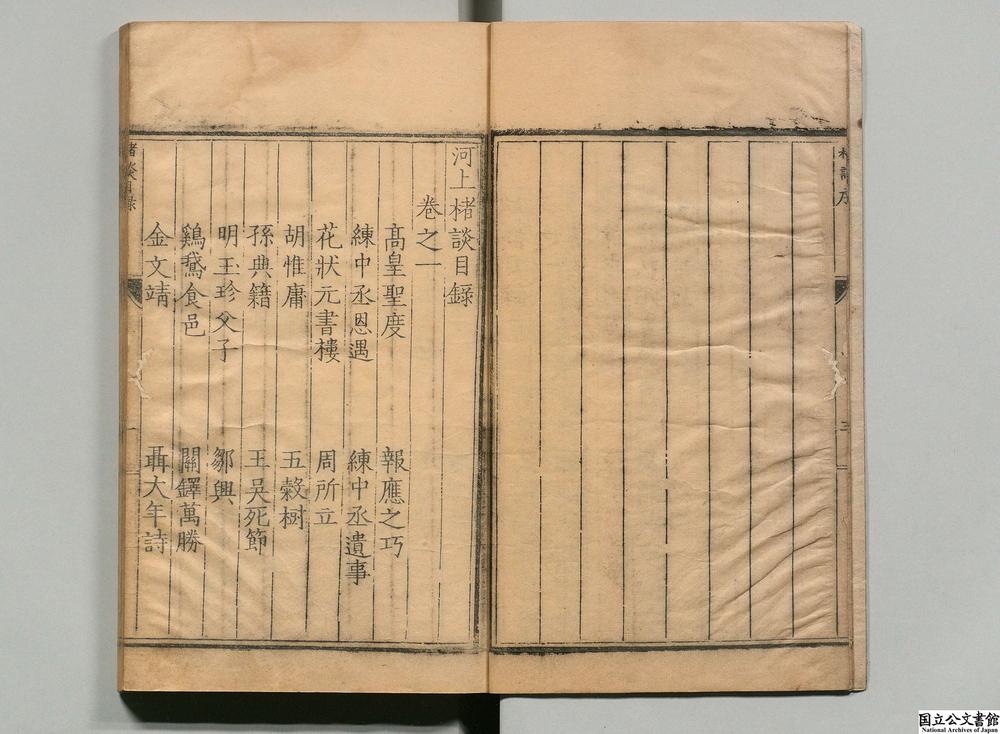 河上楮談目錄
卷之一
高皇聖度 報應之巧
練中丞恩遇 練中丞遺事
花狀元書樓 周所立
胡惟庸 五穀树
孫典籍 王吳死節
明玉珍父子 鄒興
鷄鵞食邑 關鐸萬勝
金文靖 聶大年詩
楮談目錄
一
三
国立公文書館
National Archives of Japan